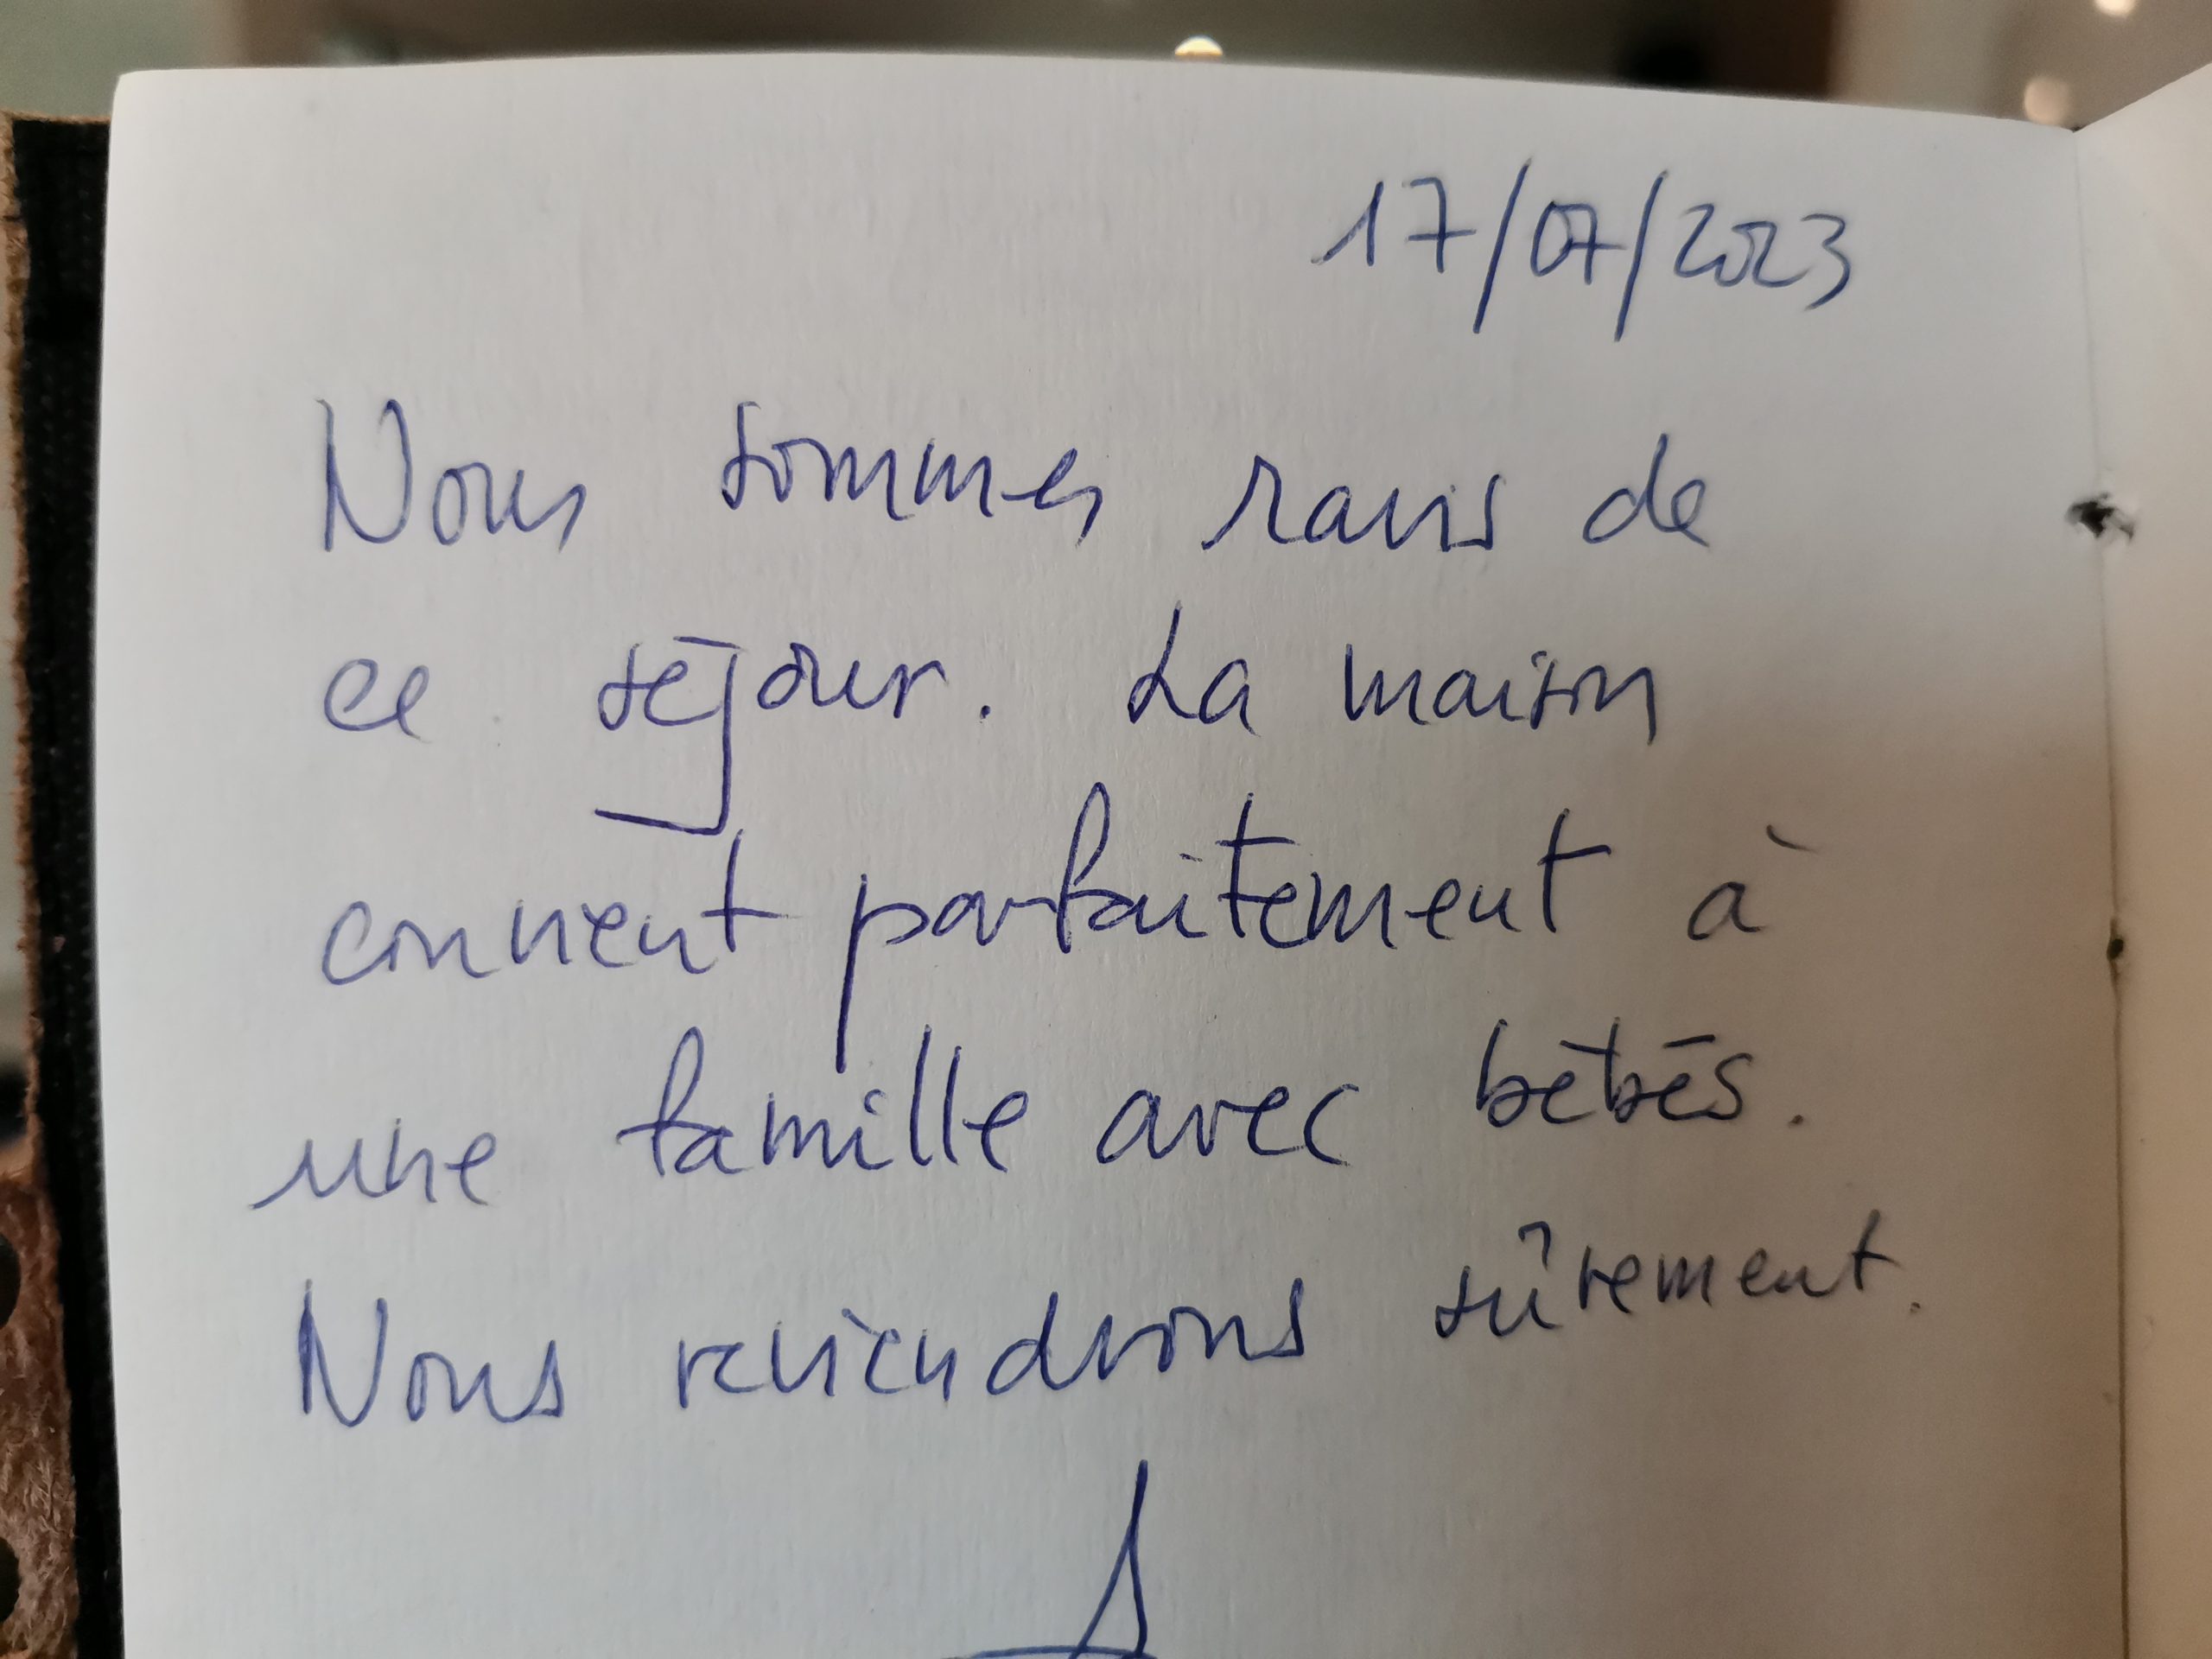 17/07/2023
Nous sommes ravis de
ce séjour. La maison
convient parfaitement à
une famille avec bébés.
Nous reviendrons sûrement.